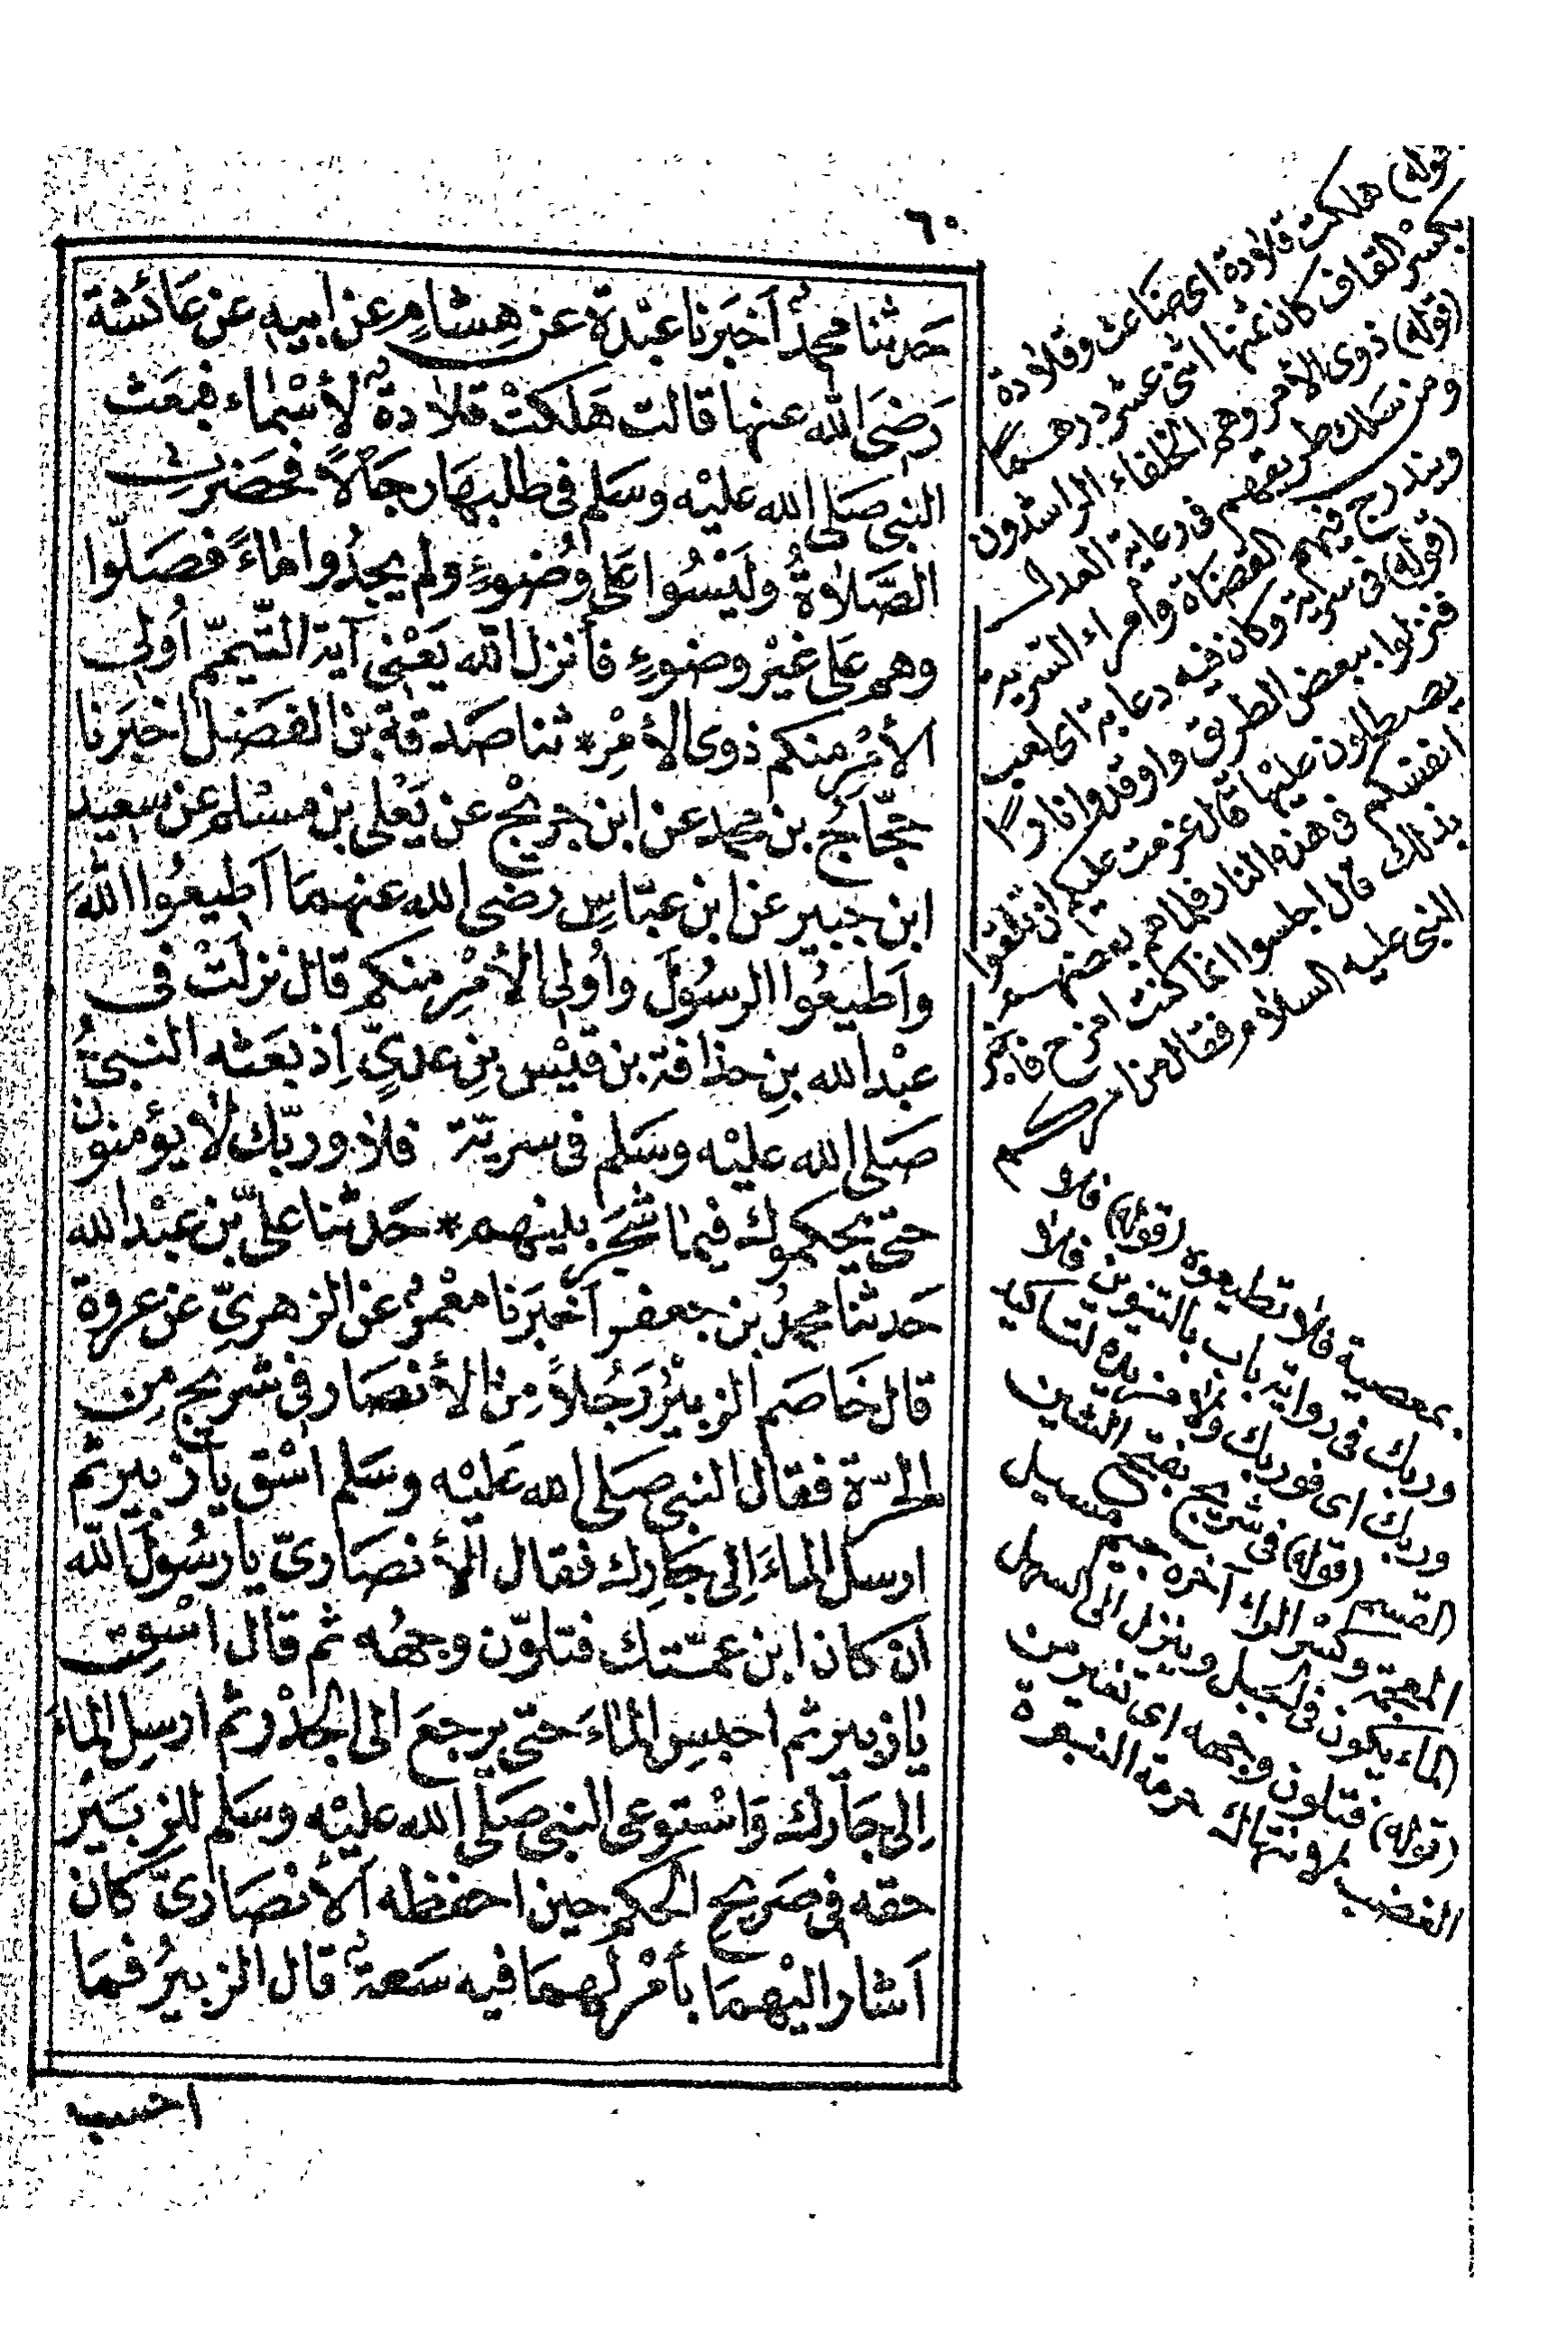 ٦٠
حَدثنا محمدٌ أخبَرنا عبْدة عن هِشامٍ عن ابيه عن عَائشة
رَضىَ الله عنها قالت هَلكتْ قلادةٌ لأسْماء فبعَث
النبى صَلى الله عليْه وسَلم فى طلبهَا رجَالاً فحَضرتِ
الصَّلاةُ ولَيْسُوا عَلى وُضوءٍ ولم يجدُوا ماءً فصَلّوا
وهم عَلى غيْر وضوءٍ فأنزل الله يَعْنى آية التّيمّم أولى
الأمْرِ منكم ذوى الأمْرِ * ثنا صَدقة بن الفضل اخبَرنا
حجّاجُ بن محمد عن ابن جريْج عن يَعْلى بن مسْلم عن سعيد
ابن جبير عن ابن عبّاسٍ رضى الله عنهمَا أطيعُوا اللهَ
وأطيعُوا الرسُولَ وأولى الأمْرِ منكم قال نزلَتْ فى
عبْد الله بنِ حذافة بن قيْس بن عدىٍّ إذ بعَثه النبىُّ
صَلى الله عليْه وسَلم فى سريّة فلا وربّك لا يؤمنون
حتى يحكموك فيما شجَر بينهم * حَدثنا علىّ بن عبْد الله
حَدثنا محمدُ بن جعفر أخبَرنا معْمرٌ عن الزهرىّ عن عروة
قال خَاصَم الزبيْرُ رَجُلاً مِن الأنصَار فى شريج مِن
الحرّة فقال النبى صَلى الله عَليْه وسَلم اسْق يا زبير ثم
ارسل الماءَ إلى جَارِك فقال الأنصَارىّ يا رسُولَ الله
أن كان ابن عمّتك فتلوّن وجهُه ثم قال اسْقِ
يا زبير ثم احبسِ الماءَ حتى يرجعَ الى الجدْر ثم ارسِل الماءَ
إلى جَارك وَاسْتوعى النبى صَلى الله عليْه وسَلم للزبَيْر
حقه فى صَريح الحكم حين احفظه الأنصَارىّ كان
أشار اليْهمَا بأمْرٍ لهمَا فيه سَعةٌ قال الزبيرُ فمَا
احسب
(قوله) هلكت قلادة اى ضاعت وقلادة
بكسر القاف كان ثمنها اثنى عشر درهما
(قوله) ذوى الأمر وهم الخلفاء الراشدون
ومن سلك طريقهم فى رعاية العدل
ويندرج فيهم القضاة وأمراء السرية
(قوله) فى سرية وكان فيه دعابة اى لعب
فنزلوا ببعض الطريق واوقدوا نارا
يصطلون عليها قال عزمت عليكم ان تلقوا
انفسكم فى هذه النار فلما هم بعضهم
بذلك قال اجلسوا انما كنت امزح فاخبر
النبى عليه السلام فقال من امركم
بمعصية فلا تطيعوه (قوله) فلا
وربك فى رواية باب بالتنوين فلا
وربك اى فوربك ولا مزيدة لتأكيد
القسم (قوله) فى شريج بفتح الشين
المعجمة وكسر الراء آخره جيم مسيل
الماء يكون فى الجبل وينزل الى السهل
(قوله) فتلون وجهه اى تغير من
الغضب لانتهاك حرمة النبوة